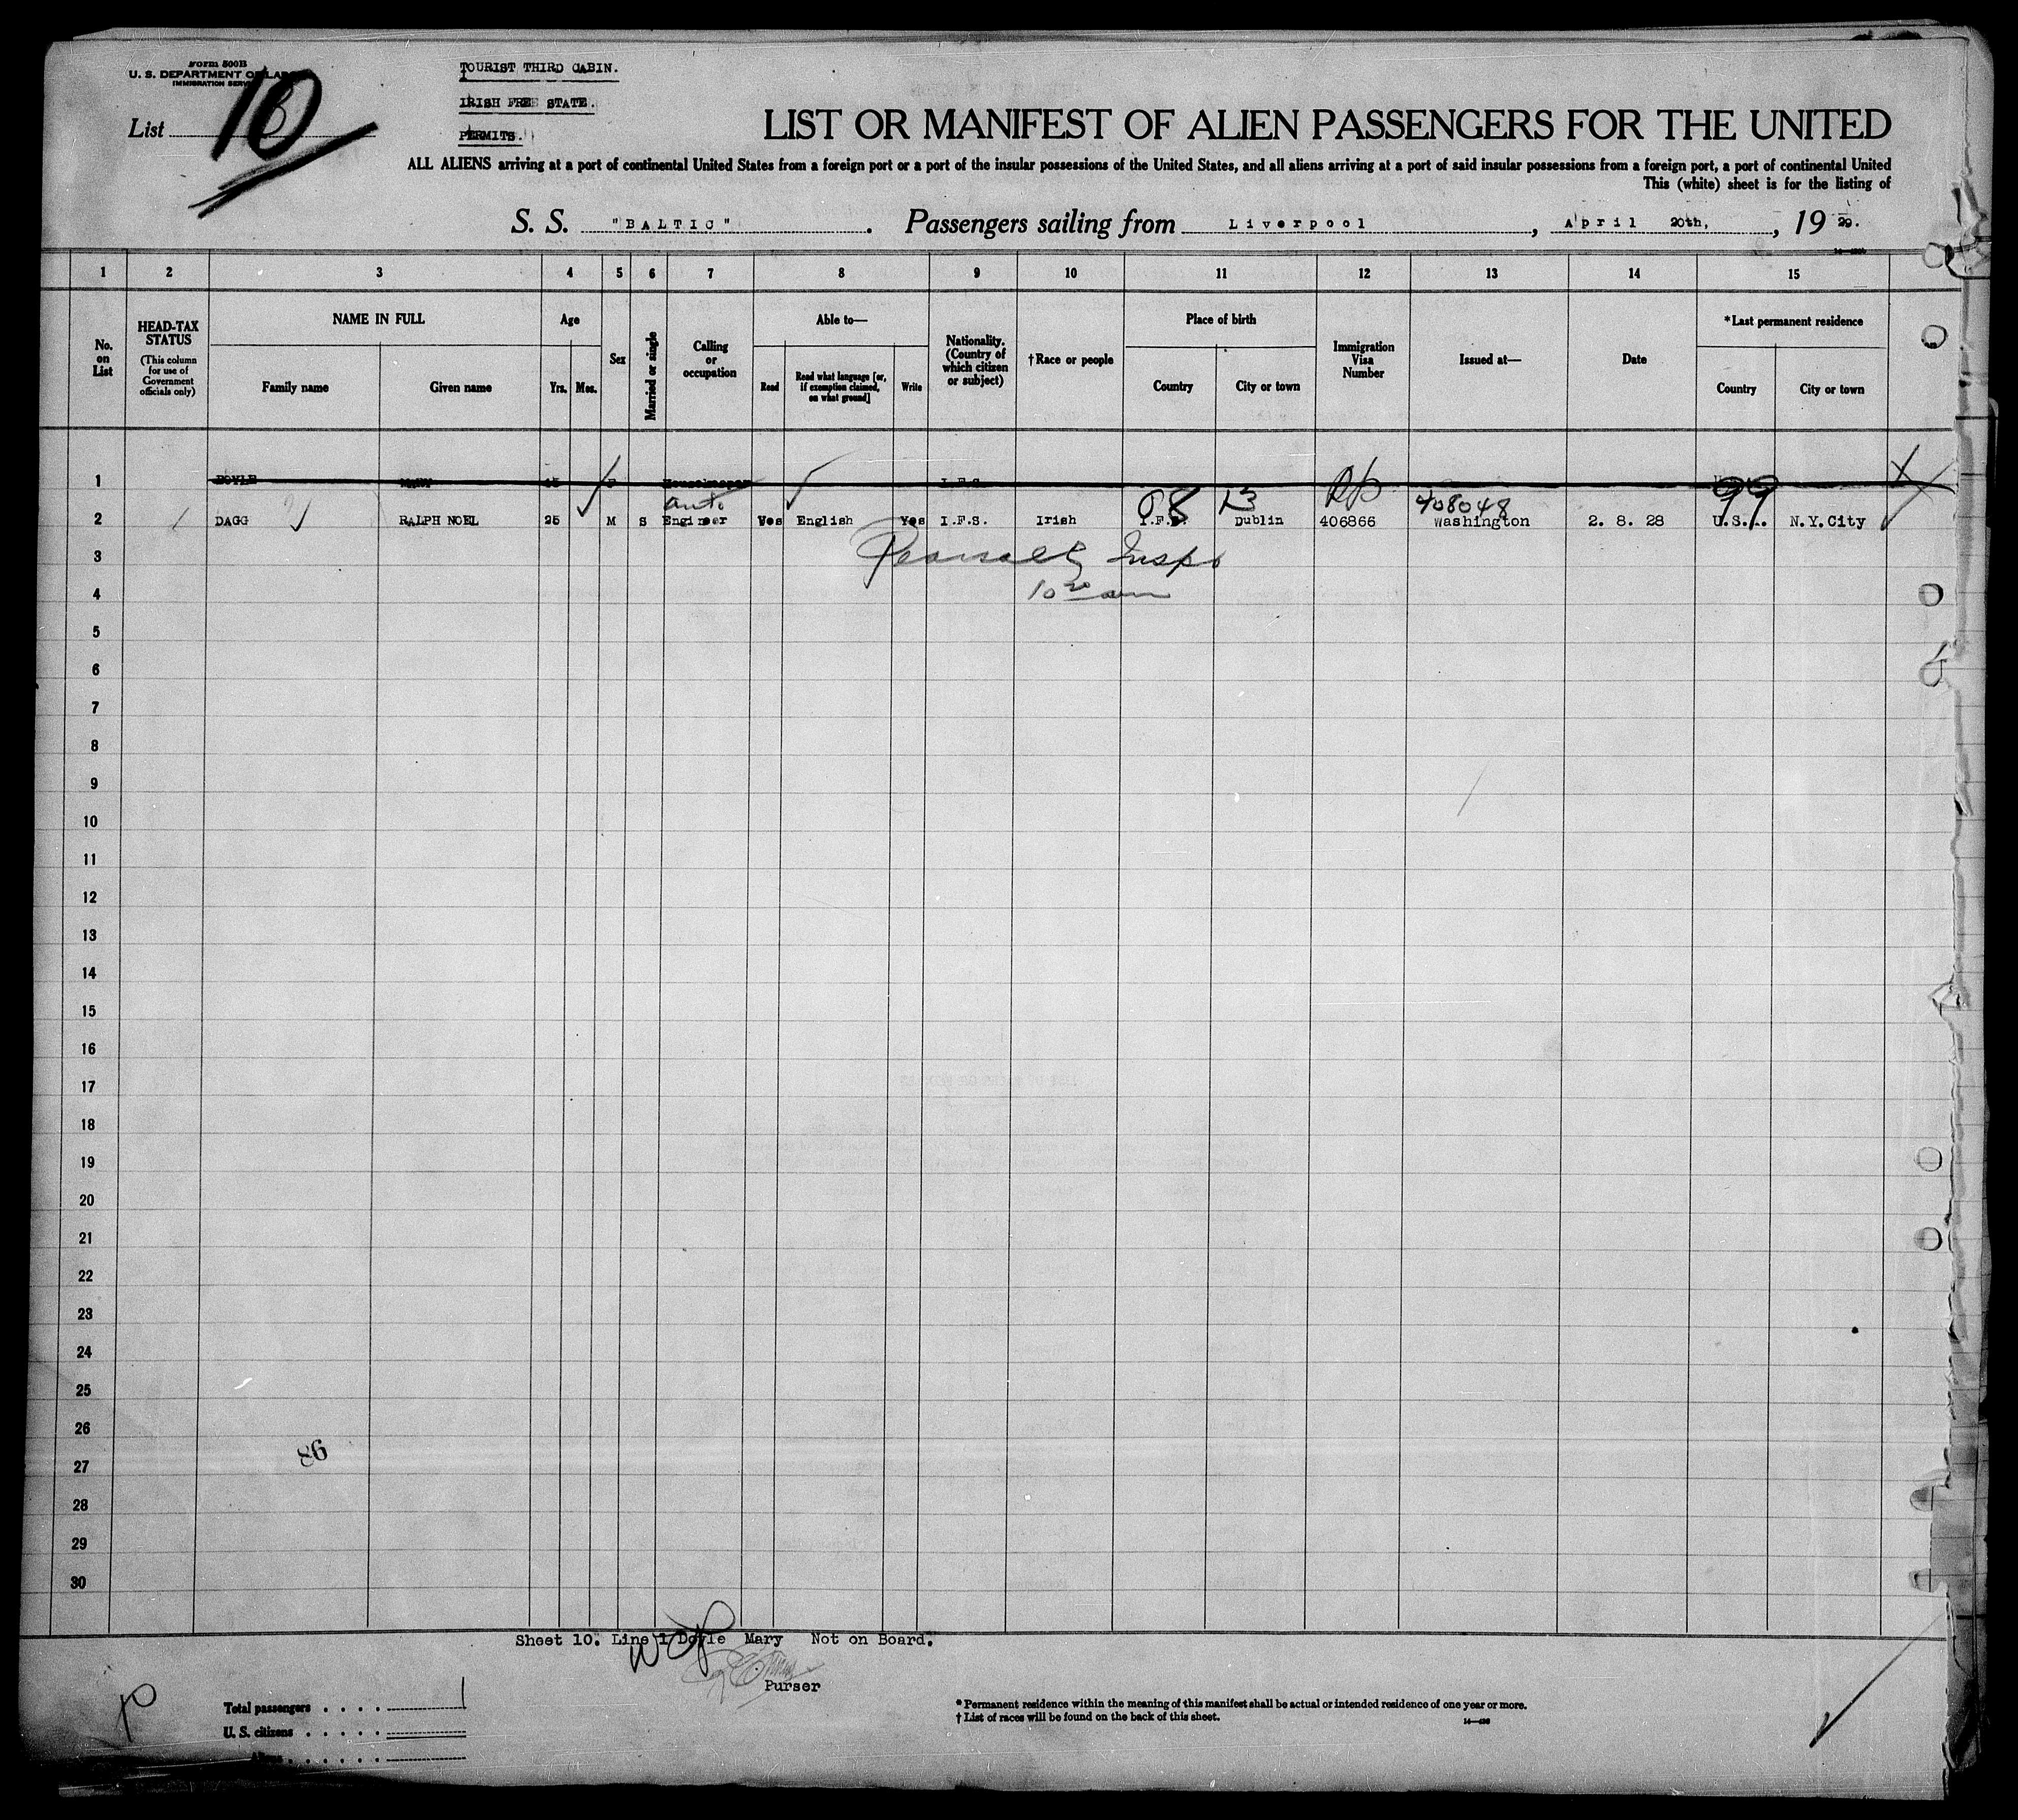 Form 500B
U. S. DEPARTMENT OF LABOR
IMMIGRATION SERVICE
List 10
TOURIST THIRD CABIN.
IRISH FREE STATE.
PERMITS.
LIST OR MANIFEST OF ALIEN PASSENGERS FOR THE UNITED
ALL ALIENS arriving at a port of continental United States from a foreign port or a port of the insular possessions of the United States, and all aliens arriving at a port of said insular possessions from a foreign port, a port of continental United
This (white) sheet is for the listing of
S. S. "BALTIC". Passengers sailing from Liverpool, April 20th, 1929.
1 2 3 4 5 6 7 8 9 10 11 12 13 14 15
No. on List
HEAD-TAX STATUS
(This column for use of Government officials only)
NAME IN FULL
Family name
Given name
Age
Yrs.
Mos.
Sex
Married or single
Calling or occupation
Able to—
Read
Read what language [or, if exemption claimed, on what ground]
Write
Nationality. (Country of which citizen or subject)
†Race or people
Place of birth
Country
City or town
Immigration Visa Number
Issued at—
Date
*Last permanent residence
Country
City or town
1 DOYLE MARY 45 F Housekeeper I.F.S.
Auto. 08 13 RP 408048 99
2 DAGG RALPH NOEL 25 M S Engineer Yes English Yes I.F.S. Irish I.F.S. Dublin 406866 Washington 2. 8. 28 U.S.A. N.Y.City
3 Pearsall Insp
4 10 20 am
5
6
7
8
9
10
11
12
13
14
15
16
17
18
19
20
21
22
23
24
25
26
86
27
28
29
30
Sheet 10. Line 1 Doyle Mary Not on Board.
Purser
Total passengers . . . . 1
U. S. citizens . . . . .
Aliens . . . . . .
* Permanent residence within the meaning of this manifest shall be actual or intended residence of one year or more.
† List of races will be found on the back of this sheet.